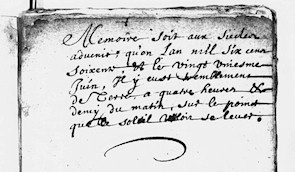 Memoire soit aux siecles
advenir, qu'on Lan mil six cens
soixente et le vingt uniesme
Juin, Il y eust tremblement
de Terre, a quatre heures &
demy du matin, sur le point
que le soleil vouloir se lever.